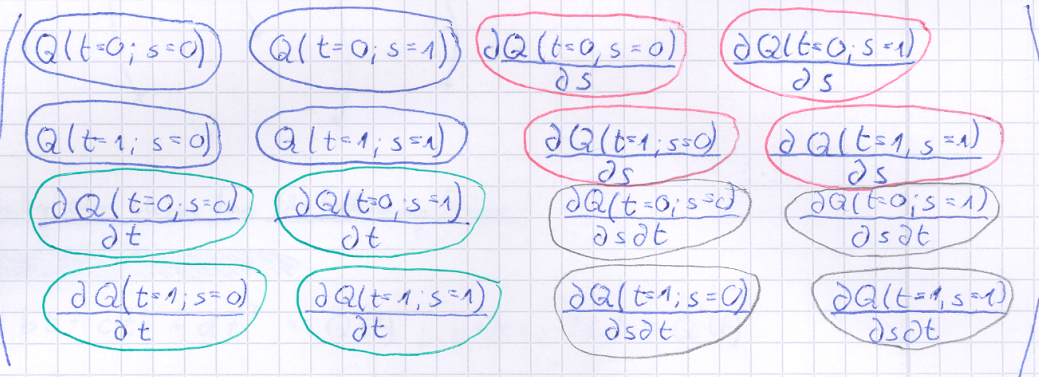 Q(t=0; s=0) Q(t=0; s=1) ∂Q(t=0; s=0)/∂s ∂Q(t=0; s=1)/∂s
Q(t=1; s=0) Q(t=1; s=1) ∂Q(t=1; s=0)/∂s ∂Q(t=1; s=1)/∂s
∂Q(t=0; s=0)/∂t ∂Q(t=0; s=1)/∂t ∂Q(t=0; s=0)/∂s∂t ∂Q(t=0; s=1)/∂s∂t
∂Q(t=1; s=0)/∂t ∂Q(t=1; s=1)/∂t ∂Q(t=1; s=0)/∂s∂t ∂Q(t=1, s=1)/∂s∂t